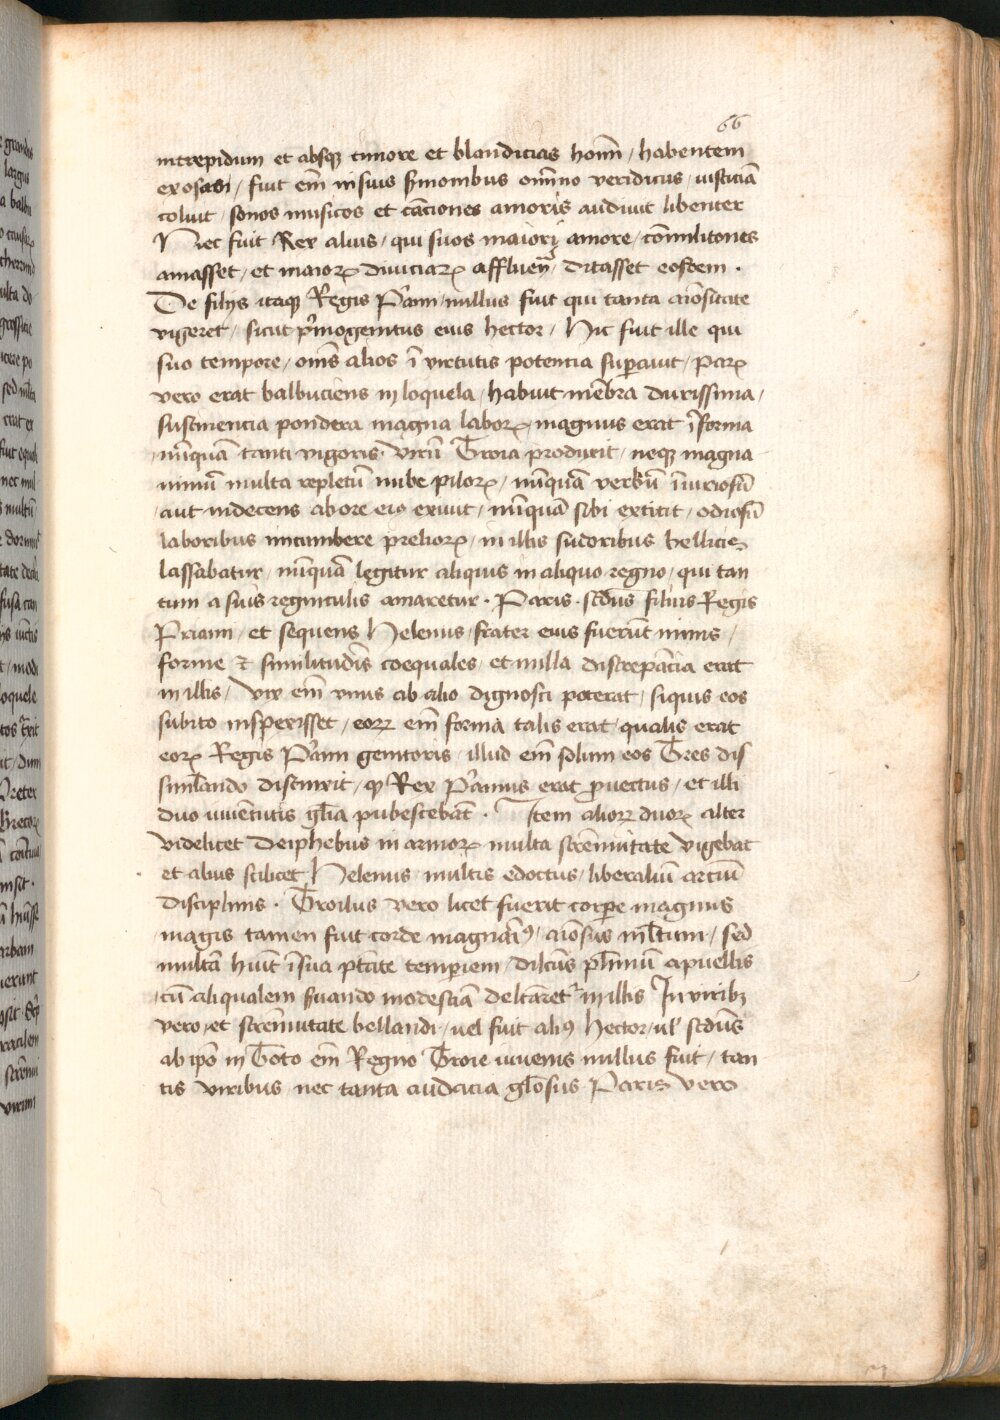 66
intrepidum et absq̨ timore et blandicias homĩ / habentem
exosas / fuit em̄ in suis s̃monibus omĩno veridicus / iusticiã
coluit / sonos musicos et cãciones amoris audiuit libenter
Nec fuit Rex alius / qui suos maiori amore / com̃ilitones
amasset / et maiorꝝ diuiciarꝝ affluen̄ / ditasset eosdem .
De filijs itaqꝫ Regis P̃ami / nullus fuit qui tanta aĩositate
vigeret / sicut p̃mogenitus eius hector / Hic fuit ille qui
suo tempore / om̃s alios ĩ virtutis potencia suꝑauit / parꝝ
vero erat balbuciens in loquela / habuit mẽbra durissima /
sustinencia pondera magna laborꝝ / magnus erat ĩ forma
nũquã tanti vigoris virũ Troia produxit / neqꝫ magna
nimũ multa repletũ nube pilorꝝ / nũquã verbũ ĩiuriosũ
aut indecens ab ore eiꝰ exiuit / nũquã sibi extitit / odiosũ
laboribus incumbere preliorꝝ / in illis sudoribus bellicis
lassabatur / nũquã legitur aliquis in aliquo regno / qui tan
tum a suis regniculis amaretur . Paris . sedus filius Regis
Priami / et sequens Helenus / frater eius fuerũt nimis /
forme et similitudĩs coequales / et nulla discrepãcia erat
in illis / Vix em̄ vnus ab alio dignosci poterat / siquis eos
subito inspexisset / eorꝝ em̄ forma talis erat / qualis erat
eorꝝ Regis P̃ami genitoris / illud em̄ solum eos Tres dis
simil̄ando discinxit / qꝫ Rex P̃amus erat ꝓuectus / et illi
duo iuuẽtutis gl̄ia pubescebãt . Item aliorꝝ duorꝝ alter
videlicet Deiphebus in armorꝝ multa strẽnuitate vigebat
et alius scilicet Helenus / multis edoctus / liberaliũ arciũ
disciplinis . Troilus vero licet fuerit corꝑe magnus
magis tamen fuit corde magnãĩꝰ / aĩosus ml̄tum / sed
multã huit̄ ĩ sua ptãte tempiem / dilc̃us pl̄imũ a puellis
cũ aliqualem s̃uando modestiã delc̃aret̃ in illis In viribꝫ
vero / et strẽnuitate bellandi / uel fuit aliꝰ Hector / ul̄ scd̃us
ab ip̃o in Toto em̄ Regno Troie iuuenis nullus fuit / tan
tis viribus nec tanta audacia gl̄osus Paris vero